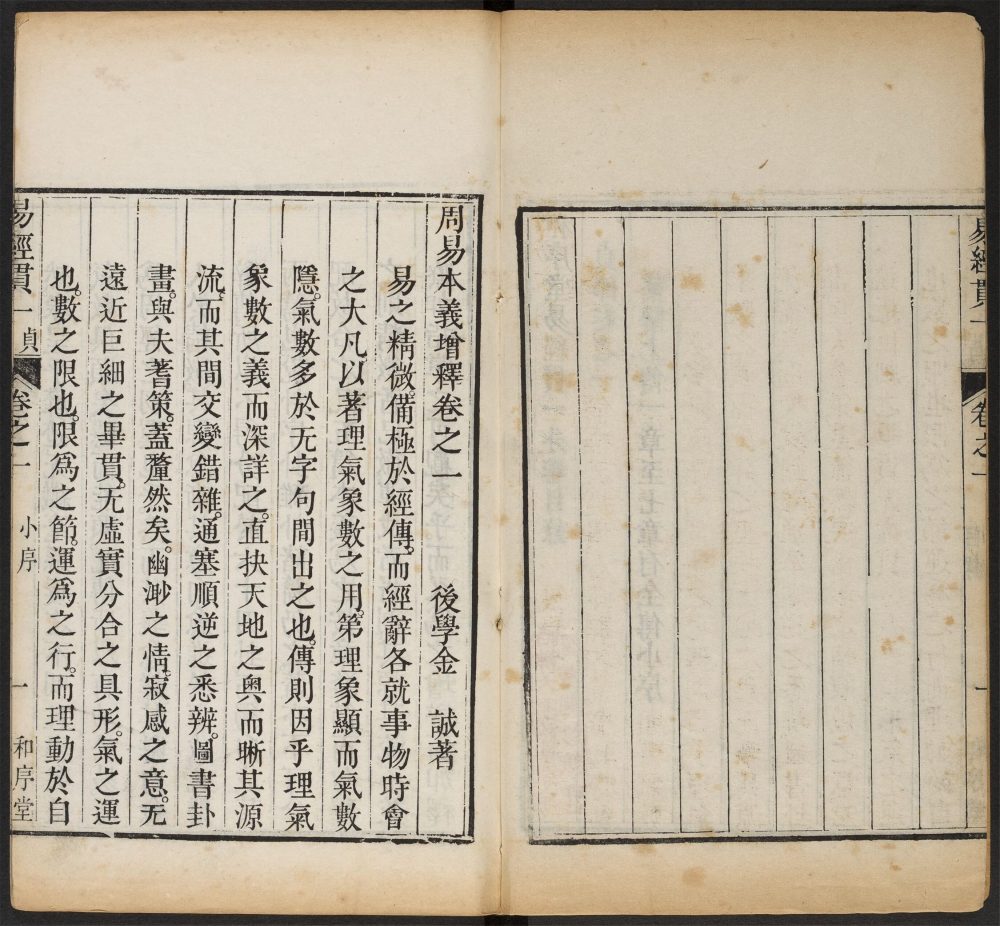 易經貫一
卷之一
一
周易本義增釋卷之一　後學金　誠著
易之精微。備極於經傳。而經辭各就事物時會
之大凡。以著理氣象數之用。第理象顯而氣數
隱。氣數多於无字句間出之也。傳則因乎理氣
象數之義而深詳之。直抉天地之奧而晰其源
流。而其間交變錯雜。通塞順逆之悉辨。圖書卦
畫。與夫蓍策。蓋釐然矣。幽渺之情。寂感之意。无
遠近巨細之畢貫。无虛實分合之具形。氣之運
也。數之限也。限爲之節。運爲之行。而理動於自
易經貫一　貞　卷之一　小序　一　和序堂